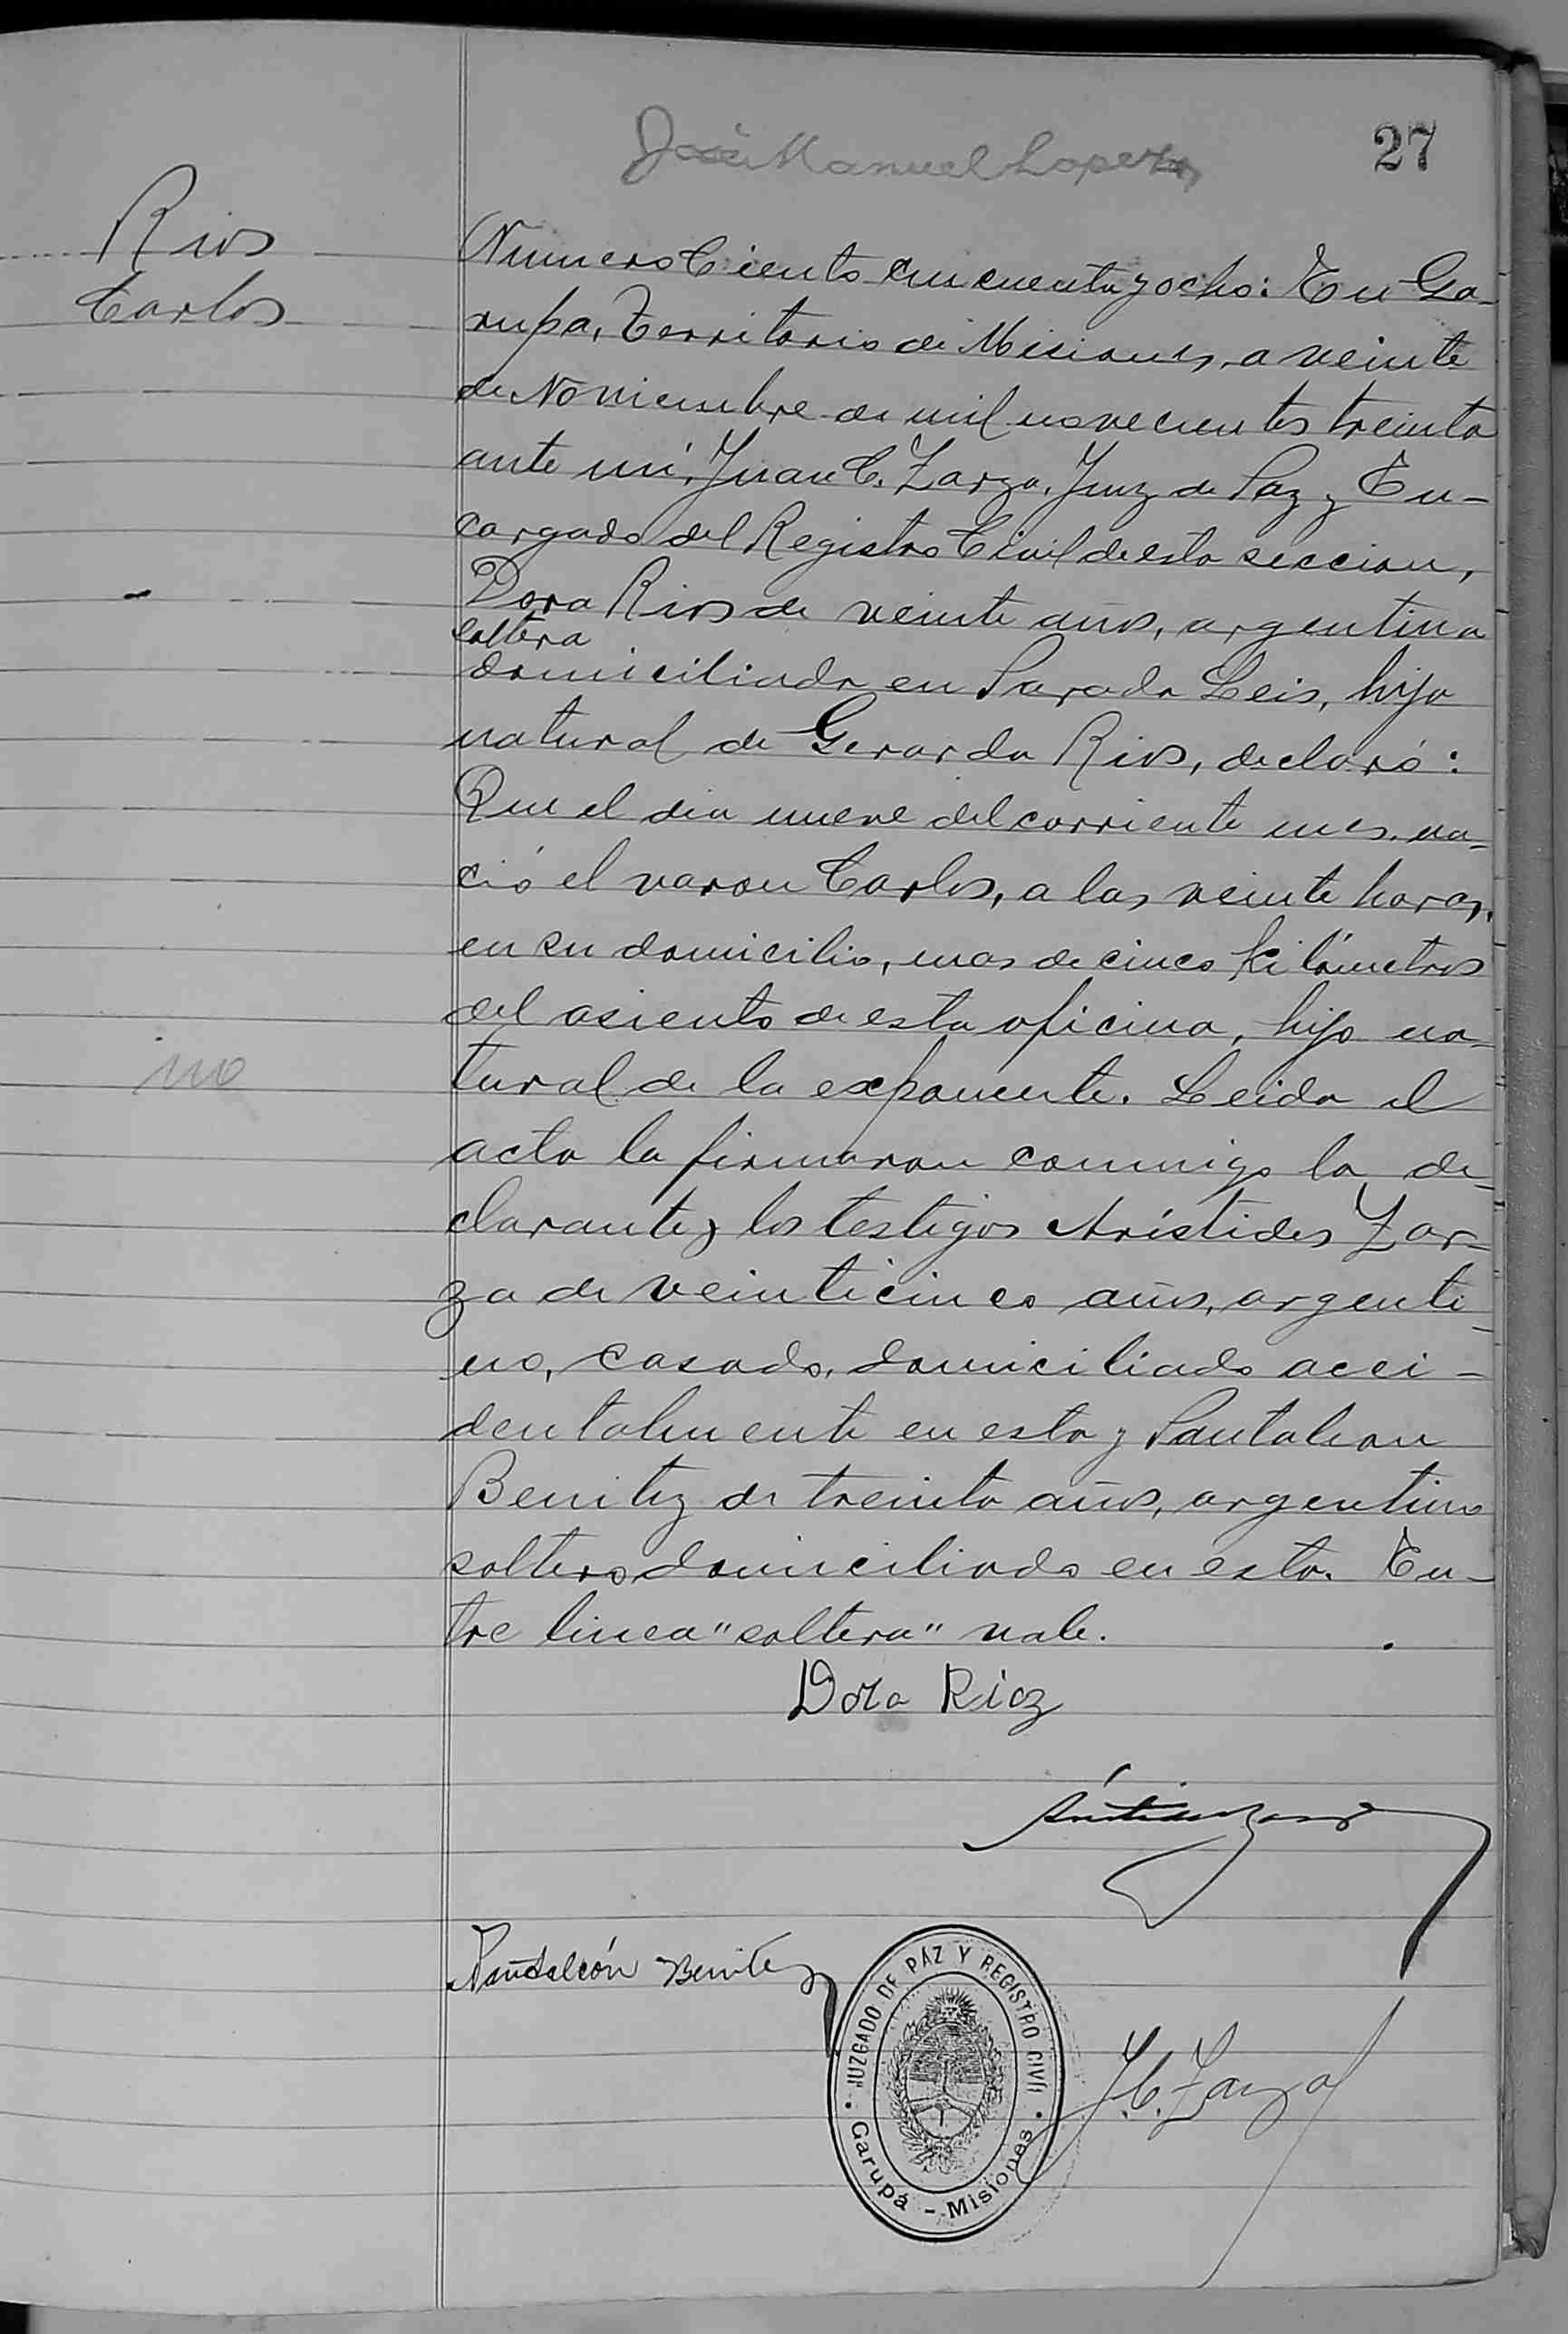 José Manuel Lopez
27
Rios
Carlos
Numero Ciento cincuenta y ocho: En Ga-
rupa, Territorio de Misiones, a veinte
de Noviembre de mil novecientos treinta
ante mi, Juan C. Zarza, Juez de Paz y En-
cargado del Registro Civil de esta seccion,
Dora Rios de veinte años, argentina
soltera
domiciliada en Parada Leis, hija
natural de Gerarda Rios, declaró:
Que el dia nueve del corriente mes, na-
ció el varon Carlos, a las veinte horas,
en su domicilio, mas de cinco kilómetros
del asiento de esta oficina, hijo na-
tural de la exponente. Leida el
acta la firmaron conmigo la de-
clarante y los testigos Arístides Zar-
za de veinticinco años, argenti-
no, casado, domiciliado acci-
dentalmente en esta y Pantaleon
Benitez de treinta años, argentino
soltero domiciliado en esta. En-
tre linea "soltera" vale.
no
Dora Rioz
Arístides Zarza
Pantaleón Benitez
JUZGADO DE PAZ Y REGISTRO CIVIL
Garupá - Misiones
J. C. Zarza